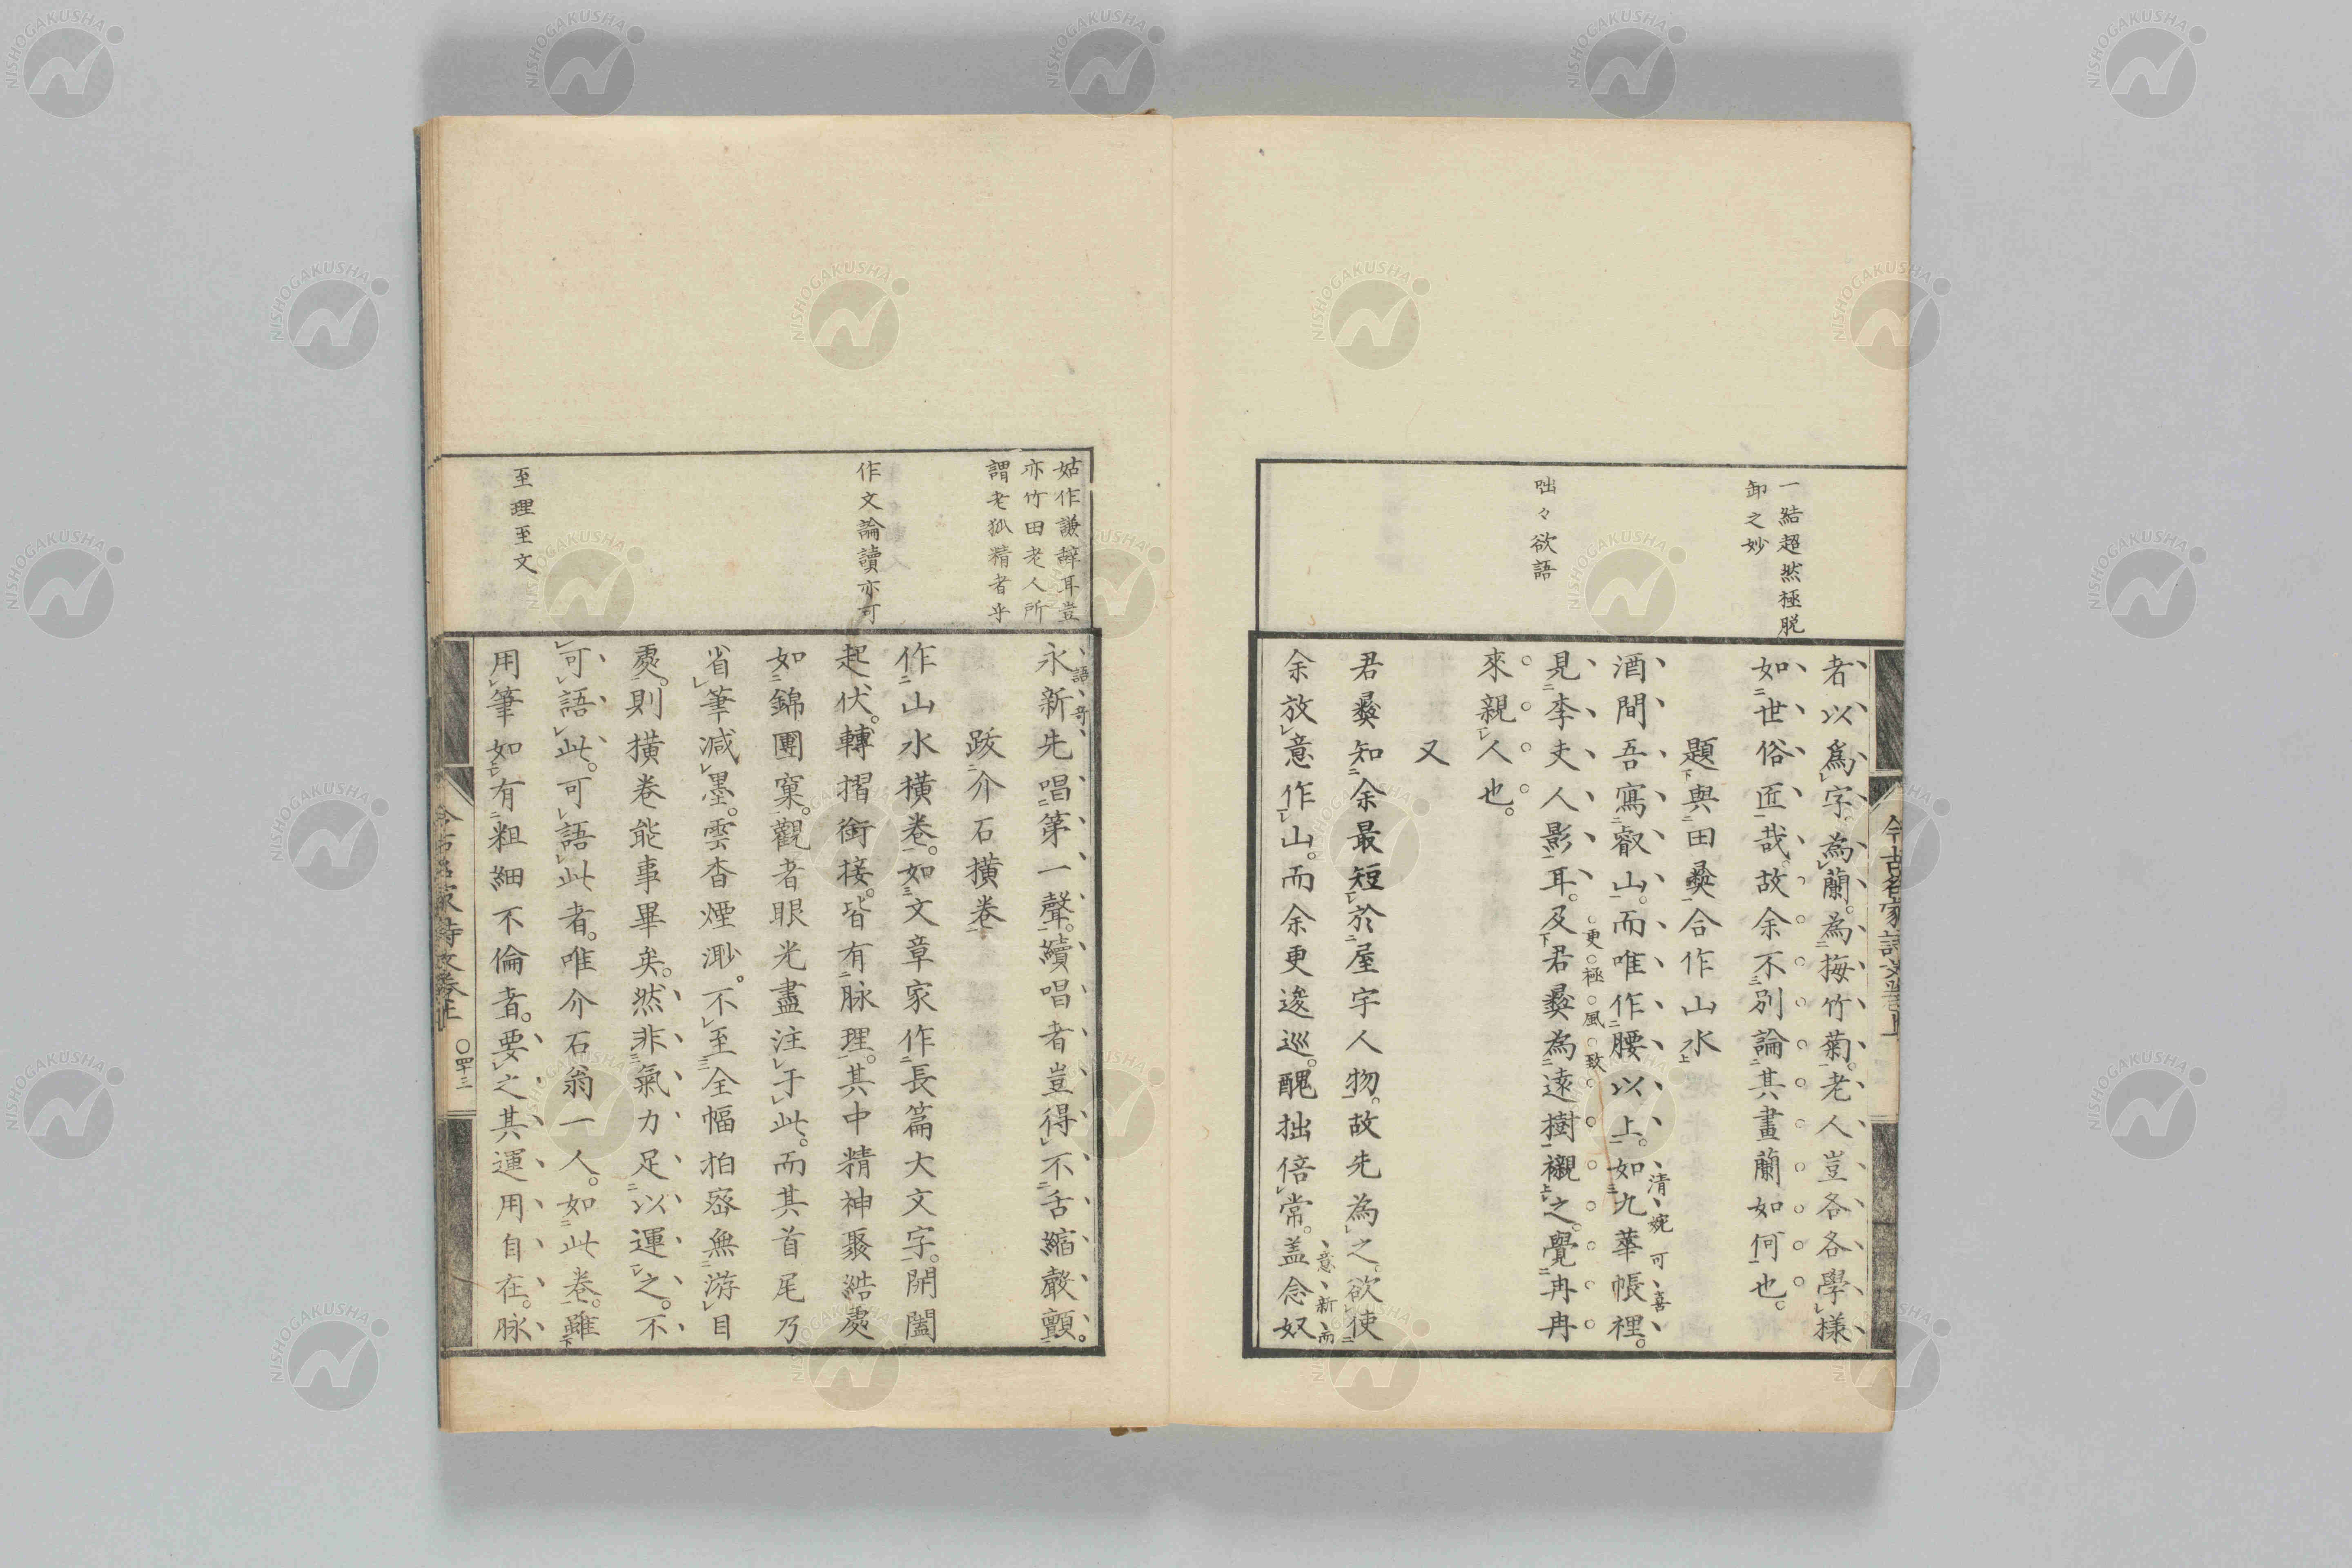 一結超然極脱
卸之妙
咄々欲語
者以爲字為蘭。為梅竹菊。老人豈各各學樣
如世俗匠哉。故余不別論其畫蘭如何也。
題與田彜合作山水
酒間吾寫叡山。而唯作腰以上。如九華帳裡。
清婉可喜
見李夫人影耳。及君彜為遠樹襯之。覺冉冉
更極風致
來親人也。
又
君彜知余最短於屋宇人物。故先為之。欲使
余放意作山。而余更逡巡。醜拙倍常。盖念奴
意新而
姑作謙辭耳豈
亦竹田老人所
謂老狐精者乎
作文論讀亦可
至理至文
永新先唱第一聲。續唱者豈得不舌縮聲顫。
語奇
跋介石横卷
作山水横卷。如文章家作長篇大文字。開闔
起伏。轉摺銜接。皆有脉理。其中精神聚結處
如錦團窠。觀者眼光盡注于此。而其首尾乃
省筆減墨。雲杳煙渺。不至全幅拍密無游目
處。則横卷能事畢矣。然非氣力足以運之。不
可語此。可語此者。唯介石翁一人。如此卷。雖
用筆如有粗細不倫者。要之其運用自在。脉
今古名家詩文卷上
〇四十三